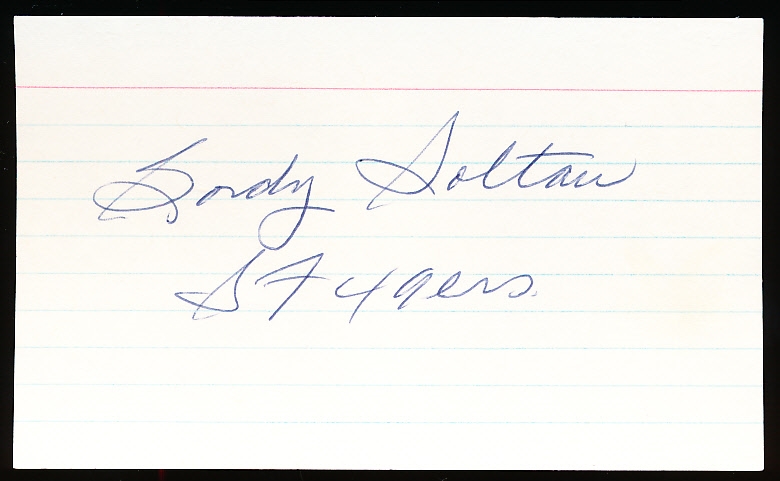 Gordy Soltau
SF 49ers.